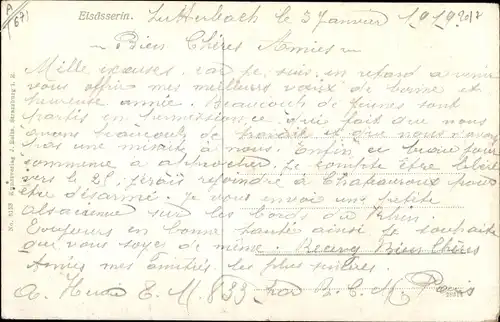 P
671
Elsässerin.
Lutterbach le 3 Janvier 1919
Bien Chères Amies
Mille excuses, car je suis en retard a venir
vous offrir mes meilleurs vœux de bonne et
heureuse année. Beaucoup de jeunes sont
partis en permission ce qui fait que nous
avons beaucoup de travail et que nous n'avons
pas une minute à nous. Enfin ce beau jour
commence a approcher. Je compte être libéré
vers le 25. J'irais rejoindre à Chateauroux pour
être désarmé. Je vous envoi une petite
alsacienne sur les bords du Rhin.
Toujours en bonne santé ainsi le souhaite
que vous soyez de même. Recevez Bien Chères
Amies mes Amitiés les plus sincères.
A. E. M 833 par B. C. M. Paris
No. 8139
Strassburg i. E.